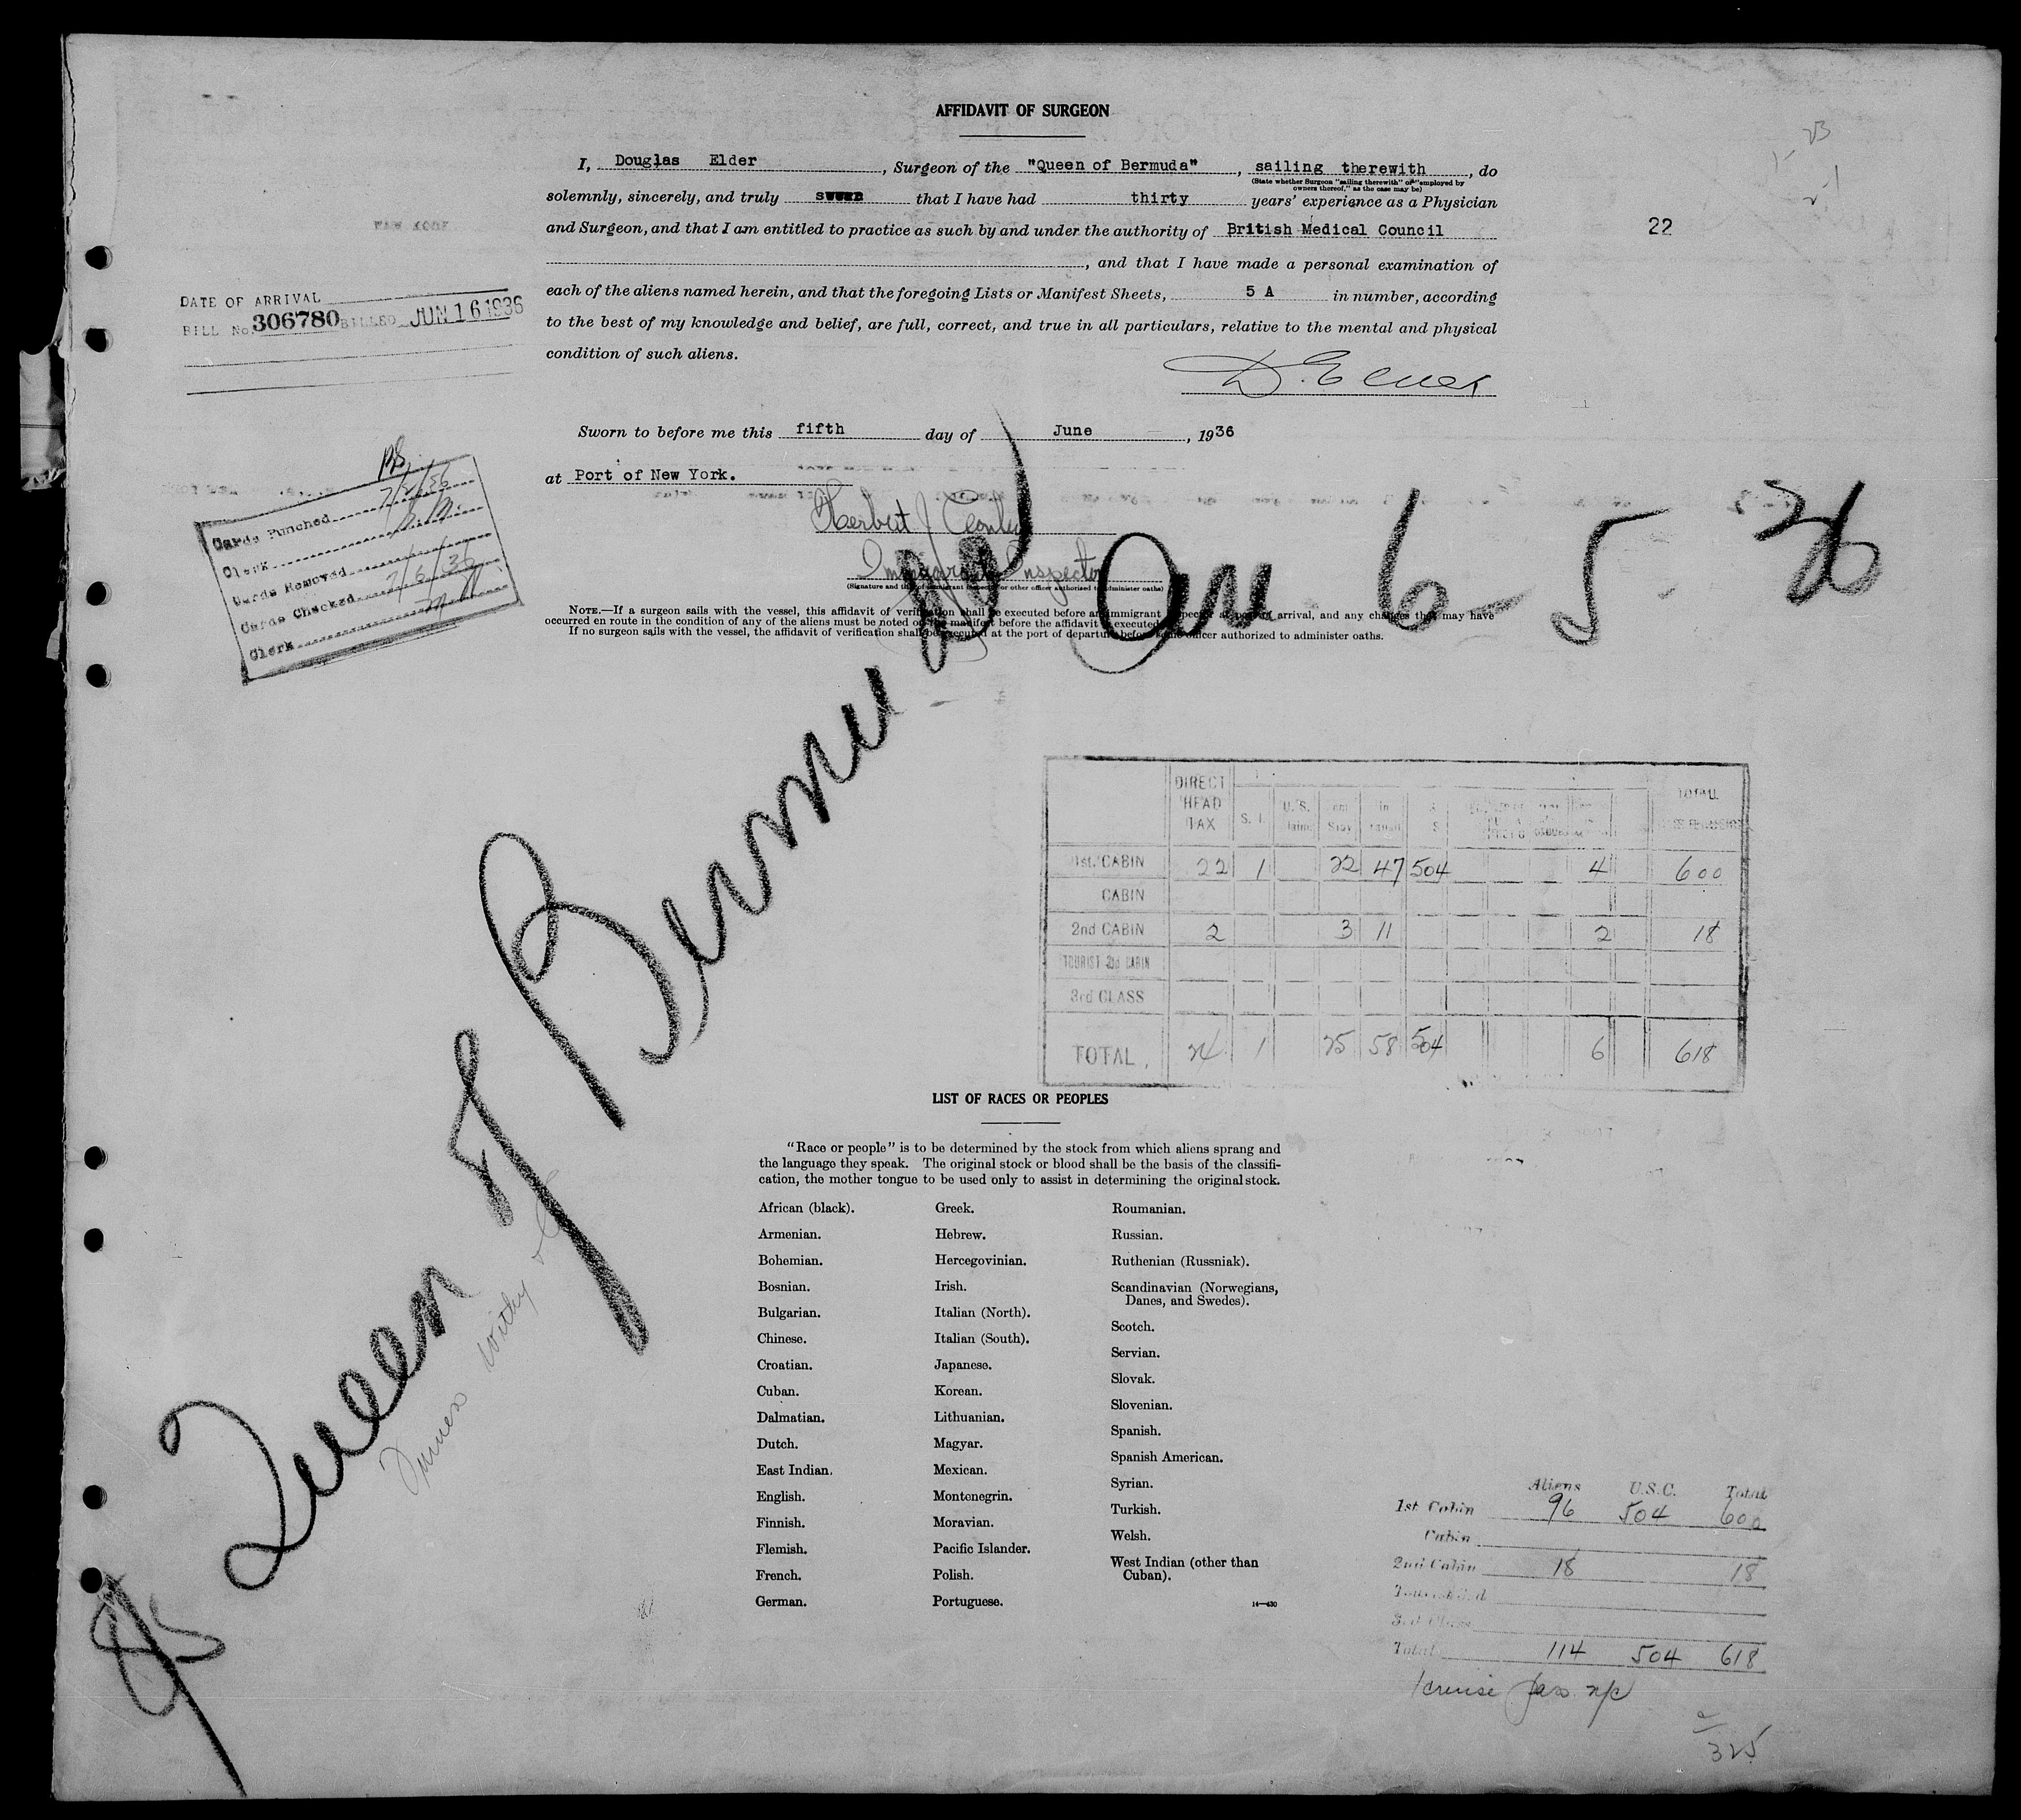 AFFIDAVIT OF SURGEON
I, Douglas Elder, Surgeon of the "Queen of Bermuda", sailing therewith, do
(State whether Surgeon "sailing therewith" or "employed by
owners thereof," as the case may be)
solemnly, sincerely, and truly swear that I have had thirty years' experience as a Physician
and Surgeon, and that I am entitled to practice as such by and under the authority of British Medical Council
, and that I have made a personal examination of
each of the aliens named herein, and that the foregoing Lists or Manifest Sheets, 5 A in number, according
to the best of my knowledge and belief, are full, correct, and true in all particulars, relative to the mental and physical
condition of such aliens.
22
NEW YORK
DATE OF ARRIVAL
BILL No. 306780 BILLED JUN 16 1936
D. Elder
Sworn to before me this fifth day of June, 1936
at Port of New York.
Herbert J
Immigrant Inspector
(Signature and title of immigrant inspector or other officer authorized to administer oaths)
NOTE.—If a surgeon sails with the vessel, this affidavit of verification shall be executed before an immigrant inspector at port of arrival, and any changes that may have
occurred en route in the condition of any of the aliens must be noted on the manifest before the affidavit is executed.
If no surgeon sails with the vessel, the affidavit of verification shall be executed at the port of departure before some officer authorized to administer oaths.
Cards Punched 7/2/36
Clerk
Cards Removed
Cards Checked 7/6/36
Clerk
Queen of Bermuda
Arr 6-5-36
Furness Withy
DIRECT HEAD TAX S. I. U.S. TOTAL
1st. CABIN 22 1 22 47 504 4 600
CABIN
2nd CABIN 2 3 11 2 18
TOURIST 2nd CABIN
3rd CLASS
TOTAL 24 1 25 58 504 6 618
LIST OF RACES OR PEOPLES
"Race or people" is to be determined by the stock from which aliens sprang and
the language they speak. The original stock or blood shall be the basis of the classifi-
cation, the mother tongue to be used only to assist in determining the original stock.
African (black).
Armenian.
Bohemian.
Bosnian.
Bulgarian.
Chinese.
Croatian.
Cuban.
Dalmatian.
Dutch.
East Indian.
English.
Finnish.
Flemish.
French.
German.
Greek.
Hebrew.
Hercegovinian.
Irish.
Italian (North).
Italian (South).
Japanese.
Korean.
Lithuanian.
Magyar.
Mexican.
Montenegrin.
Moravian.
Pacific Islander.
Polish.
Portuguese.
Roumanian.
Russian.
Ruthenian (Russniak).
Scandinavian (Norwegians,
Danes, and Swedes).
Scotch.
Servian.
Slovak.
Slovenian.
Spanish.
Spanish American.
Syrian.
Turkish.
Welsh.
West Indian (other than
Cuban).
14—430
Aliens U.S.C. Total
1st Cabin 96 504 600
Cabin
2nd Cabin 18 18
3rd Class
Total 114 504 618
1 cruise pass
325